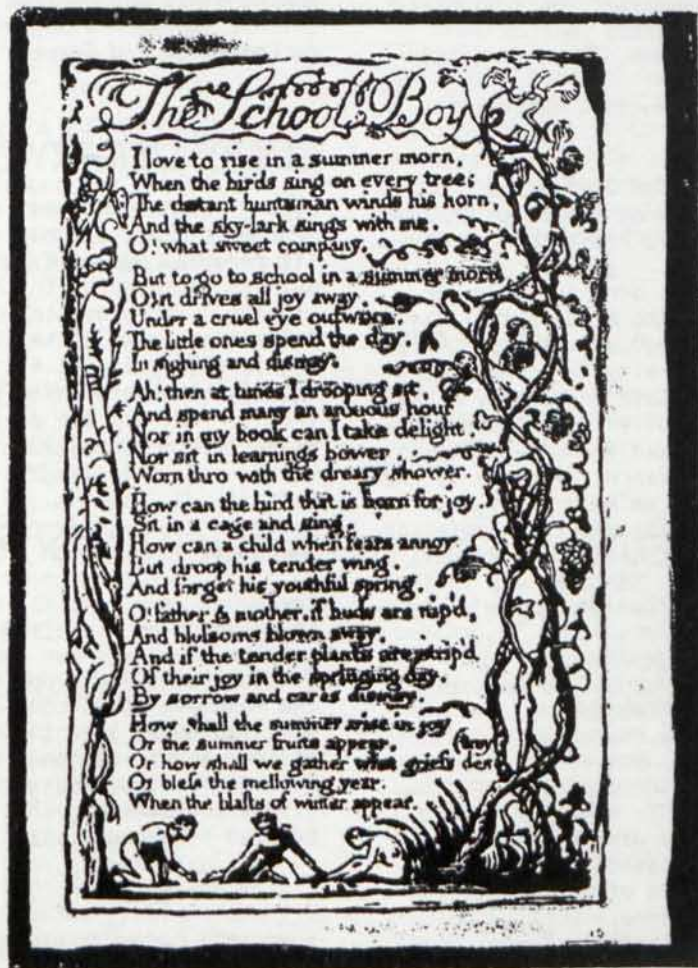 The School Boy
I love to rise in a summer morn,
When the birds sing on every tree;
The distant huntsman winds his horn,
And the sky-lark sings with me.
O! what sweet company.
But to go to school in a summer morn
O! it drives all joy away.
Under a cruel eye outworn,
The little ones spend the day,
In sighing and dismay.
Ah! then at times I drooping sit,
And spend many an anxious hour
Nor in my book can I take delight,
Nor sit in learnings bower,
Worn thro with the dreary shower.
How can the bird that is born for joy,
Sit in a cage and sing,
How can a child when fears annoy
But droop his tender wing,
And forget his youthful spring.
O! father & mother, if buds are nip'd,
And blossoms blown away,
And if the tender plants are strip'd
Of their joy in the springing day,
By sorrow and cares dismay,
How shall the summer arise in joy
Or the summer fruits appear,
Or how shall we gather what griefs des
(troy
Or bless the mellowing year,
When the blasts of winter appear.